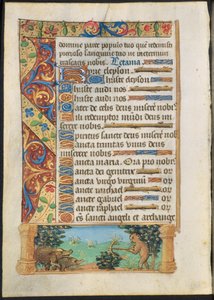 domine parce populo tuo que redemisti
precioso sanguine tuo ne in eternum
irascaris nobis. Letania
Kyrie eleyson
Christe eleyson
Christe audi nos
Pater de celis deus miserere nobis
Fili redemptor mundi deus mi
serere nobis
Spiritus sancte deus miserere nobis
Sancta trinitas vnus deus
miserere nobis
Sancta maria Ora pro nobis
Sancta dei genitrix or
Sancta virgo virginum or
Sancte michael or
Sancte gabriel or
Sancte raphael or
Omnes sancti angeli et archange